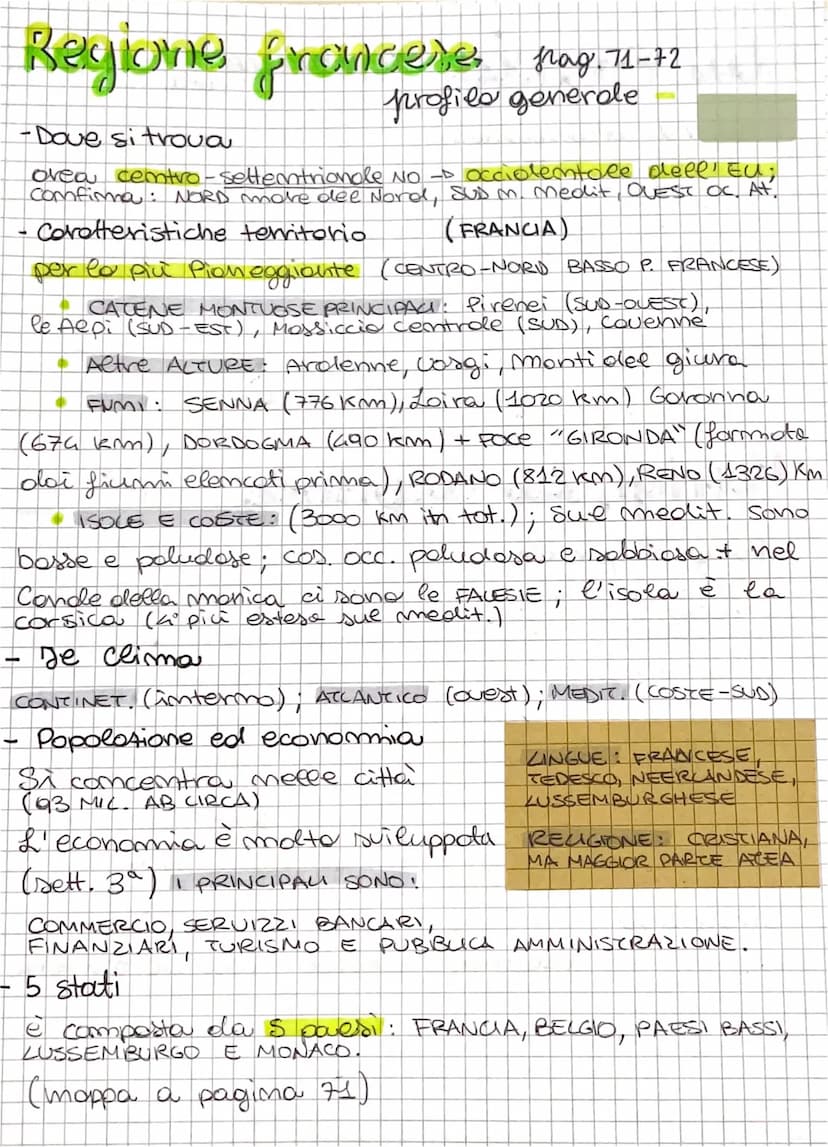 Regione francese pag. 71-72
profilo generale -
- Dove si trova
area centro-settentrionale NO → occidentale dell'EU;
confina: NORD mare del Nord, SUD m. medit, OUEST OC. At.
- Caratteristiche territorio (FRANCIA)
per lo più Pianeggiante (CENTRO-NORD BASSO P. FRANCESE)
• CATENE MONTUOSE PRINCIPALI: Pirenei (SUD-OUEST),
le Alpi (SUD-EST), Massiccio centrale (SUD), Cavenne
• Altre ALTURE: Ardenne, Vosgi, monti del giura
• FIUMI: SENNA (776 Km), Loira (1020 km) Garonna
(674 km), DORDOGMA (490 km) + FOCE "GIRONDA" (formata
dai fiumi elencati prima), RODANO (812 km), RENO (1326) Km
• ISOLE E COSTE: (3000 km in tot.); sul medit. sono
basse e paludose; cos. occ. paludosa e sabbiosa + nel
Canale della manica ci sono le FALESIE; l'isola è la
corsica (4° più estesa sul medit.)
- Il clima
CONTINET. (interno); ATLANTICO (ovest); MEDIT. (COSTE-SUD)
- Popolazione ed economia
Si concentra nelle città
(93 MIL. AB CIRCA)
L'economia è molto sviluppata
(sett. 3ª) I PRINCIPALI SONO:
COMMERCIO, SERVIZZI BANCARI,
FINANZIARI, TURISMO E PUBBLICA AMMINISTRAZIONE.
LINGUE: FRANCESE,
TEDESCO, NEERLANDESE,
LUSSEMBURGHESE
RELIGIONE: CRISTIANA,
MA MAGGIOR PARTE ATEA
- 5 stati
è composta da 5 paesi: FRANCIA, BELGIO, PAESI BASSI,
LUSSEMBURGO E MONACO.
(mappa a pagina 71)